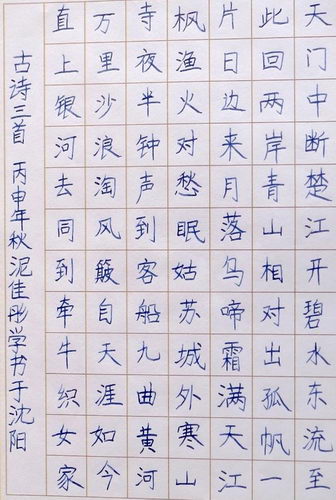 天门中断楚江开碧水东流至
此回两岸青山相对出孤帆一
片日边来月落乌啼霜满天江
枫渔火对愁眠姑苏城外寒山
寺夜半钟声到客船九曲黄河
万里沙浪淘风簸自天涯如今
直上银河去同到牵牛织女家
古诗三首 丙申年秋泥佳彤学书于沈阳